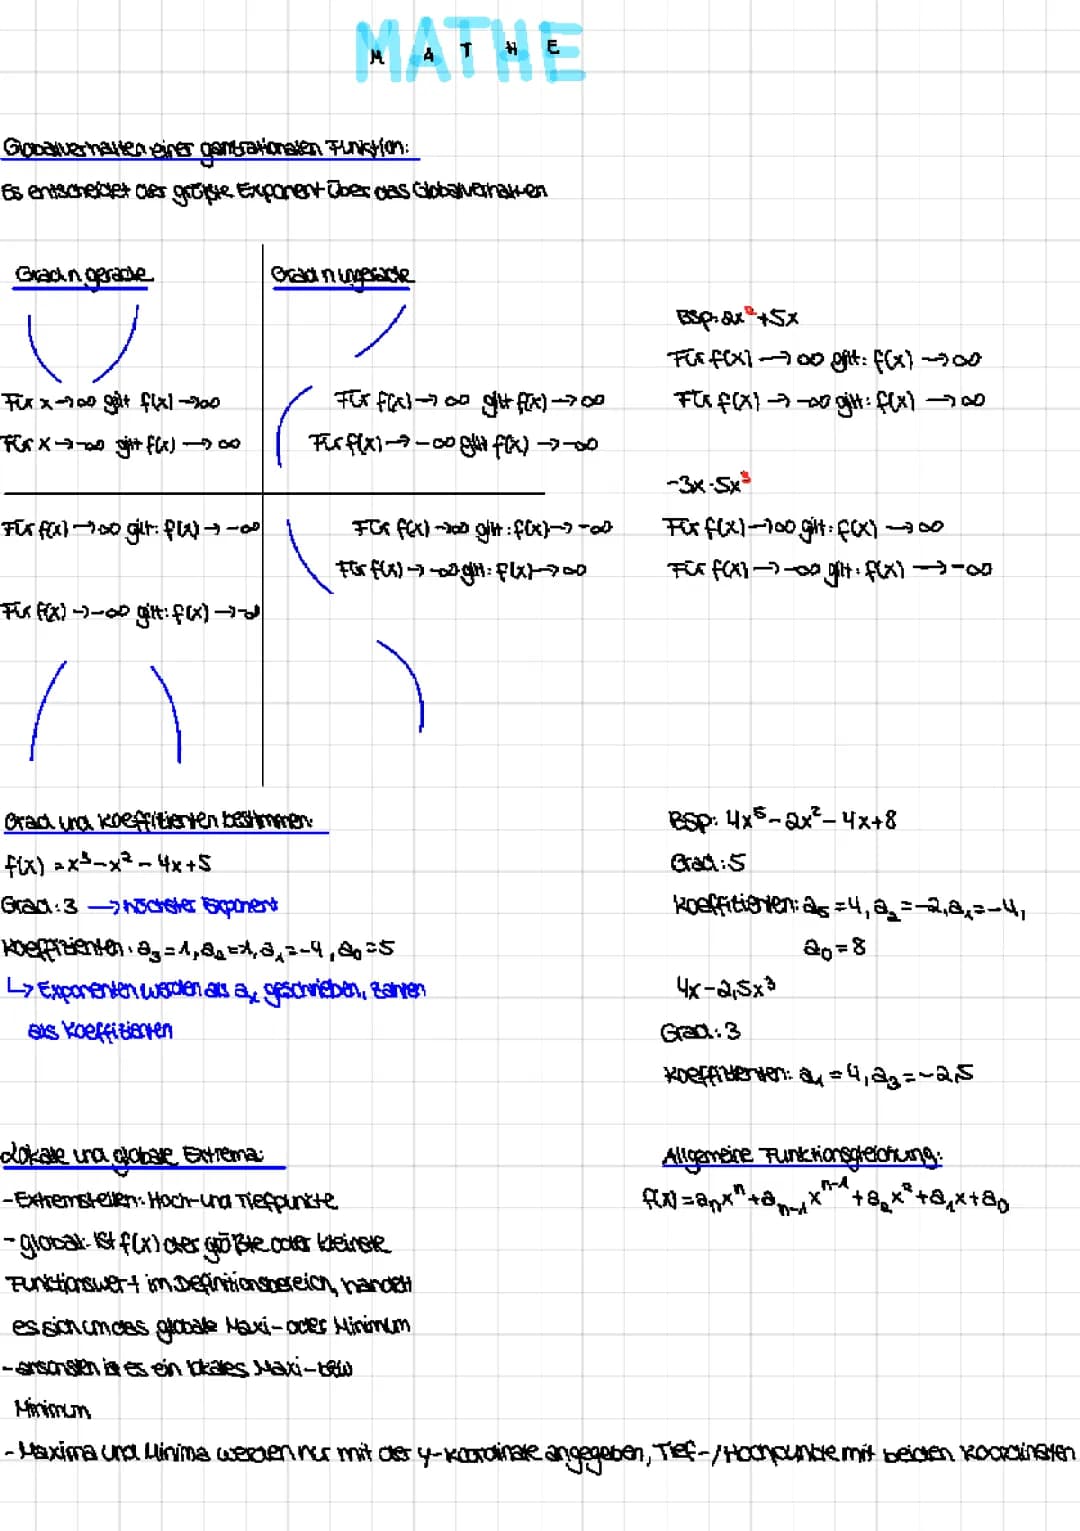 MATHE
Globalverhalten einer ganzrationalen Funktion:
Es entscheidet der größte Exponent über das Globalverhalten
Grad n gerade
Grad n ungerade
Für x → ∞ gilt f(x) → ∞
Für x → -∞ gilt f(x) → ∞
Für f(x) → ∞ gilt f(x) → ∞
Für f(x) → -∞ gilt f(x) → -∞
Für f(x) → ∞ gilt: f(x) → -∞
Für f(x) → -∞ gilt: f(x) → -∞
Für f(x) → ∞ gilt: f(x) → -∞
Für f(x) → -∞ gilt: f(x) → ∞
BSP: 2x² + 5x
Für f(x) → ∞ gilt: f(x) → ∞
Für f(x) → -∞ gilt: f(x) → ∞
-3x · 5x³
Für f(x) → ∞ gilt: f(x) → ∞
Für f(x) → -∞ gilt: f(x) → -∞
Grad und Koeffizienten bestimmen:
f(x) = x³ - x² - 4x + 5
Grad: 3 → höchster Exponent
Koeffizienten: a₃ = 1, a₂ = -1, a₁ = -4, a₀ = 5
↳ Exponenten werden als aₓ geschrieben, Zahlen
als Koeffizienten
BSP: 4x⁵ - 2x² - 4x + 8
Grad: 5
Koeffizienten: a₅ = 4, a₂ = -2, a₁ = -4,
a₀ = 8
4x - 2,5x³
Grad: 3
Koeffizienten: a₁ = 4, a₃ = -2,5
Lokale und globale Extrema:
- Extremstellen: Hoch- und Tiefpunkte
- global: ist f(x) der größte oder kleinste
Funktionswert im Definitionsbereich, handelt
es sich um das globale Maxi- oder Minimum
- ansonsten ist es ein lokales Maxi- bzw
Minimum
- Maxima und Minima werden nur mit der y-Koordinate angegeben, Tief-/Hochpunkte mit beiden Koordinaten
Allgemeine Funktionsgleichung:
f(x) = aₙxⁿ + aₙ₋₁xⁿ⁻¹ + a₂x² + a₁x + a₀